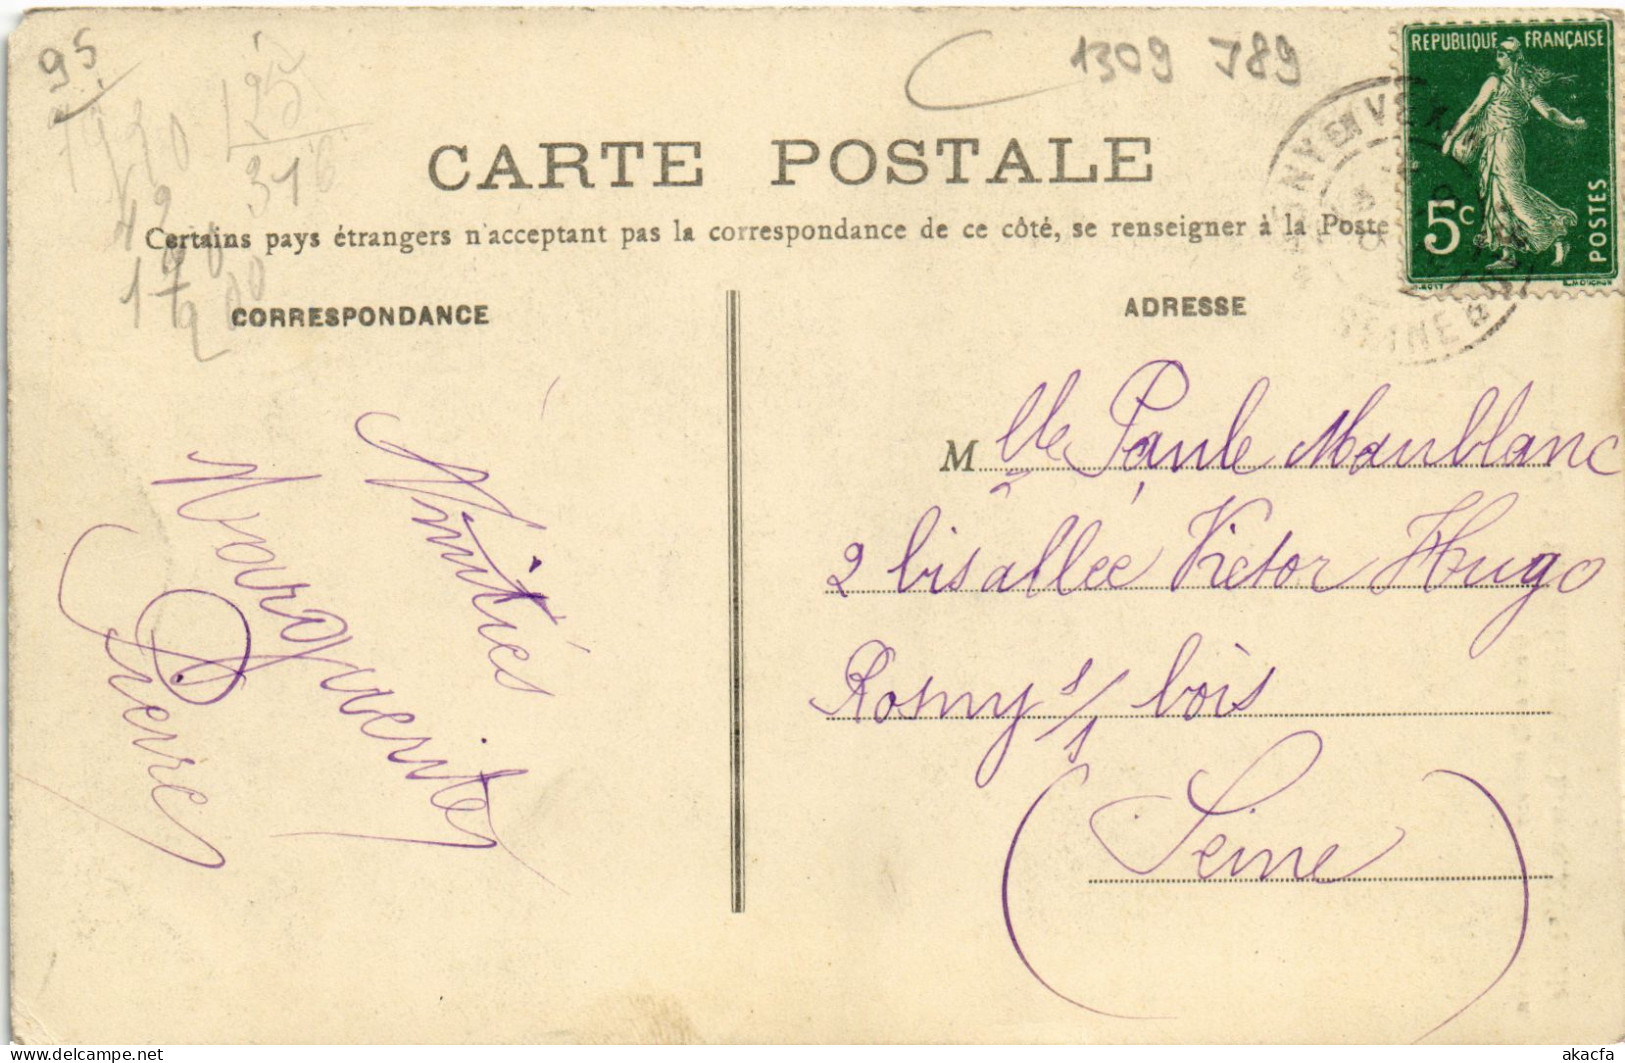 95
1309 J89
125
316
CARTE POSTALE
Certains pays étrangers n'acceptant pas la correspondance de ce côté, se renseigner à la Poste
REPUBLIQUE FRANÇAISE
5c
POSTES
SEINE
CORRESPONDANCE
ADRESSE
Amitiés
Marguerite
Pierre
Mlle Paule Maublanc
2 bis allée Victor Hugo
Rosny s/s bois
(Seine)
akacfa